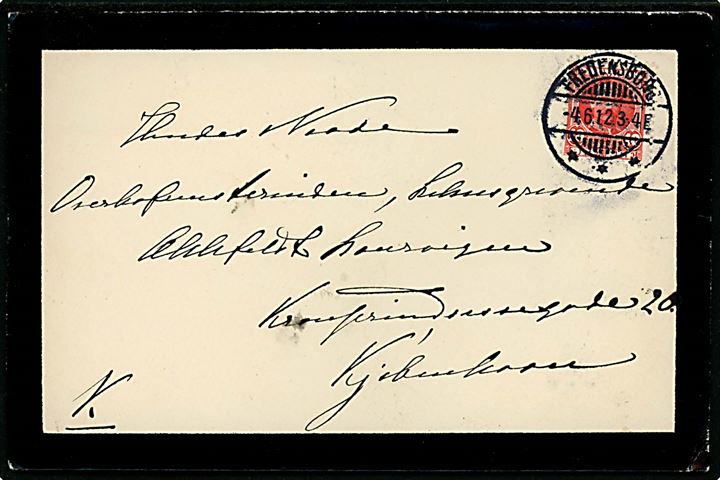 FREDENSBORG
-4.6.12.3-4E
Hendes Naade
Overhofmesterinden, Lehnsgrevinde
Ahlefeldt Laurvigen
Kronprindsessegade 20.
Kjøbenhavn
K.